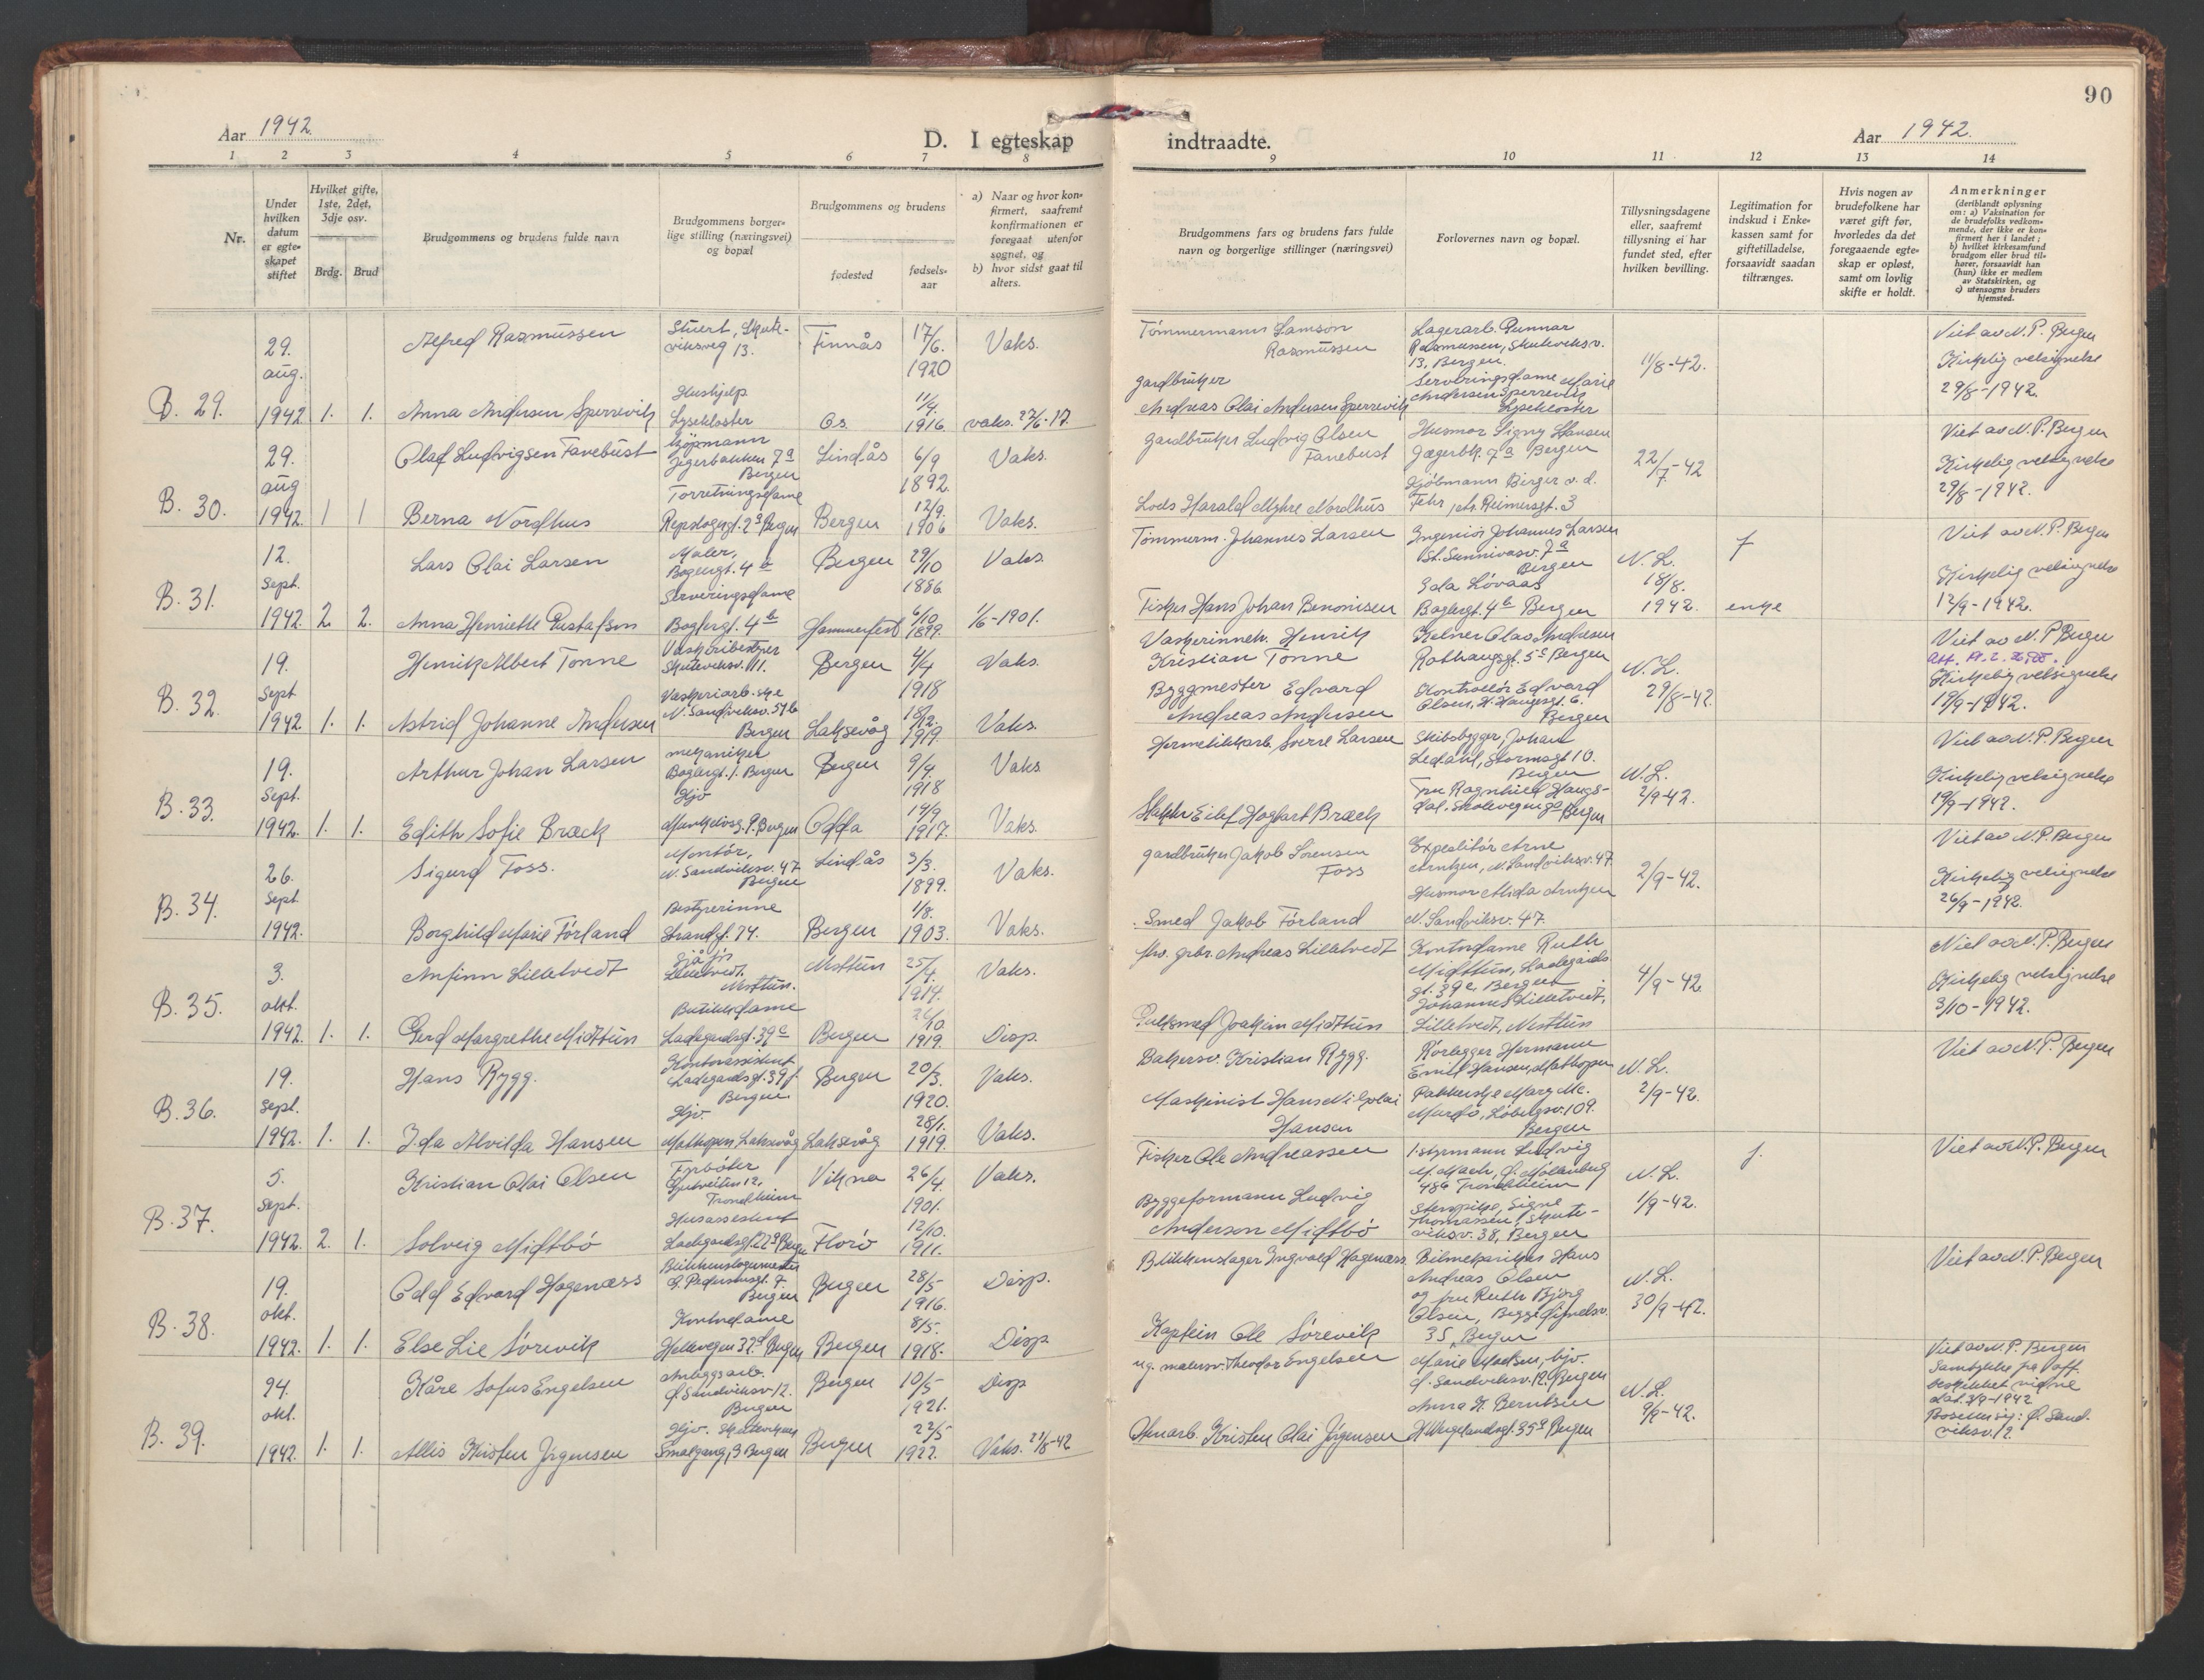 90
Aar 1942.
D. I egteskap indtraadte.
Aar 1942.
1 2 3 4 5 6 7 8 9 10 11 12 13 14
Nr.
Under hvilken datum er egteskapet stiftet
Hvilket gifte, 1ste, 2det, 3dje osv.
Brdg. Brud
Brudgommens og brudens fulde navn
Brudgommens borgerlige stilling (næringsvei) og bopæl
Brudgommens og brudens
fødested
fødselsaar
a) Naar og hvor konfirmert, saafremt konfirmationen er foregaat utenfor sognet, og
b) hvor sidst gaat til alters.
Brudgommens fars og brudens fars fulde navn og borgerlige stillinger (næringsvei)
Forlovernes navn og bopæl.
Tillysningsdagene eller, saafremt tillysning ei har fundet sted, efter hvilken bevilling.
Legitimation for indskud i Enkekassen samt for giftetilladelse, forsaavidt saadan tiltrænges.
Hvis nogen av brudefolkene har været gift før, hvorledes da det foregaaende egteskap er opløst, samt om lovlig skifte er holdt.
Anmerkninger
(deriblandt oplysning om: a) Vaksination for de brudefolks vedkommende, der ikke er konfirmert her i landet; b) hvilket kirkesamfund brudgom eller brud tilhører, forsaavidt han (hun) ikke er medlem av Statskirken, og c) utensogns bruders hjemsted.
B. 29.
29. aug. 1942 1. 1.
Alfred Rasmussen
Stuert, Skuteviksveg 13.
Finnås
17/6. 1920
Vaks.
Tömmermann Samson Rasmussen
Lagerarb. Gunnar Rasmussen, Skuteviksv. 13, Bergen.
11/8-42.
Viet av N.P. Bergen
Kirkelig velsignelse
29/8-1942.
Anna Andersen Sperrevik
Hushjelp
Lysekloster
Os.
11/4. 1916
vaks. 27/6-17.
gardbruker
Andreas Olai Andersen Sperrevik
Serveringsdame Marie Andersen Sperrevik
Lysekloster
B. 30.
29. aug 1942 1 1
Olaf Ludvigsen Fanebust
Kjøpmann
Jegerbakken 7a
Bergen
Lindås
6/9 1892.
Vaks.
gardbruker Ludvig Olsen Fanebust
Husmor Signy Hansen
Jægerbk. 7a Bergen
22/7-42
Viet av N.P. Bergen
Kirkelig velsignelse
29/8-1942.
Berna Nordhus
Forretningsdame
Repslagergt. 2a Bergen
Bergen
12/9. 1906
Vaks.
Lods Harald Myhre Nordhus
Kjöbmann Birger v.d. Fehr
B. 31.
12. Sept. 1942 2 2.
Lars Olai Larsen
Maler,
Baglergt. 4b
Bergen
29/10 1886
Vaks.
Tömmerm. Johannes Larsen
Ingeniör Johannes Larsen
St. Sunnivasv. 7a
Bergen
N.L.
18/8. 1942.
f enke
Viet av N.P. Bergen
Kirkelig velsignelse
12/9-1942.
Anna Henriette Gustafson
Serveringsdame
Baglergt. 4b
Hammerfest
6/10 1899.
1/6-1901.
Fisker Hans Johan Benonisen
Ida Lövaas
Baglergt. 4b Bergen
B. 32.
19. Sept 1942 1. 1.
Henrik Albert Tonne
Vaskeribestyrer
Skuteviksv. 111.
Bergen
4/4 1918
Vaks.
Vaskerinneh. Henrik Kristian Tonne
Kelner Olav Andersen
Rothaugsgt. 5c Bergen
N.L.
29/8-42.
Viet av N.P. Bergen
Kirkelig velsignelse
19/9-1942.
Astrid Johanne Andersen
Vaskeriarb.ske
N. Sandviksv. 51b
Bergen
Laksevåg
18/12. 1919.
Vaks.
Byggmester Edvard Andreas Andersen
Kontrollör Edvard Olsen, H. Haugesgt. 6.
Bergen
B. 33.
19. Sept. 1942. 1. 1.
Arthur Johan Larsen
mekaniker
Baglergt. 1. Bergen
Bergen
9/4. 1918
Vaks
Hermetikkarb. Sverre Larsen
Skibsbygger, Johan Ledahl, Stormsgt 10.
Bergen
N.L.
2/9-42.
Viet av N.P. Bergen
Kirkelig velsignelse
19/9-1942.
Edith Sofie Bræck
Hjv
Bergen
Odda
19/9 1917.
Vaks.
Eilef Hogbart Bræck
Fru Ragnhild Haugsdal, Bergen
B. 34.
26. Sept 1942.
Sigurd Foss.
Montör,
N. Sandviksv. 47
Bergen
Lindås
3/3. 1899.
Vaks.
gardbruker Jakob Sörensen Foss
Expeditör Arne Arntzen, N. Sandviksv. 47
2/9-42.
Viet av N.P. Bergen
Kirkelig velsignelse
26/9-1942.
Borghild Marie Förland
Bestyrerinne
Strandgt. 74.
Bergen
1/8. 1903.
Vaks.
Smed Jakob Förland
Husmor Alida Arntzen
N. Sandviksv. 47.
B. 35.
3. okt. 1942 1. 1.
Anfinn Lilletvedt
Sjåfør
Lilletvedt.
Nesttun.
Nesttun
25/4. 1914.
Vaks.
fhv. grbr. Andreas Lilletvedt
Kontordame Ruth Midttun, Ladegårdsgt. 39c, Bergen
4/9-42.
Viet av N.P. Bergen
Kirkelig velsignelse
3/10-1942.
Gerd Margrethe Midttun
Butikkdame
Ladegårdsgt. 39c
Bergen
1919.
Disp.
Gullsmed Joakim Midttun
Johannes Lilletvedt,
Lilletvedt, Nesttun
B. 36.
19. Sept. 1942. 1. 1.
Hans Rygg.
Kontorassistent
Ladegårdsgt. 39f.
Bergen
Bergen
20/3. 1920.
Vaks.
Bakersv. Kristian Rygg.
Rörlegger Hermann Emil Hansen, Mathopen
N.L.
2/9-42.
Viet av N.P. Bergen
Ida Alvilda Hansen
Hjv.
Mathopen, Laksevåg
Laksevåg
28/1. 1919.
Vaks.
Maskinist Hans Nikolai Hansen
Pakkerske Mary Mc. Murdo, Löbergsv. 109.
Bergen
B. 37.
5. Sept. 1942 2. 1.
Kristian Olai Olsen
Fyrböter
Trondheim
Vikna
26/4. 1901.
Vaks.
Fisker Ole Andreassen
1. styrmann Ludvig
48b Trondheim
N.L.
1/9-42.
f.
Viet av N.P. Bergen
Solveig Midtbö
Husassistent
Ladegårdsgt. 27a Bergen
Florö
12/10. 1911.
Byggeformann Ludvig Anderson Midtbö
Signe Thomassen, Skuteviksv. 38, Bergen
B. 38.
19. okt. 1942. 1. 1.
Odd Edvard Hagenæss
Bergen
Bergen
28/5 1916.
Disp.
Blikkenslager Ingvald Hagenæss
Bilmekaniker Hans Andreas Olsen
og fru Ruth Björg Olsen,
35, Bergen
N.L.
30/9-42.
Viet av N.P. Bergen
Else Lie Sörevik
Kontordame
Helleveien 32d Bergen
Bergen
8/5. 1918.
Disp.
Kaptein Ole Sörevik
B. 39.
24. okt. 1942. 1. 1.
Kåre Sofus Engelsen
Anleggsarb.
Ø. Sandviksv. 12.
Bergen
Bergen
10/5 1921.
Disp
ug. malersv. Theodor Engelsen
Marie Madsen, hjv.
Ø. Sandviksv. 12. Bergen
N.L.
9/9-42.
Viet av N.P. Bergen
Samtykke på off. beskikket
dat. 3/9-1942
Bosetter sig: Ø. Sandviksv. 12.
Allis Kirsten Jörgensen
Hjv. Skuteviken
Smalgang. 3 Bergen
Bergen
22/5 1922.
Vaks. 21/8-42
Kristen Olai Jörgensen
Anna K. Berntsen
H. Wergelandsgt. 35a Bergen